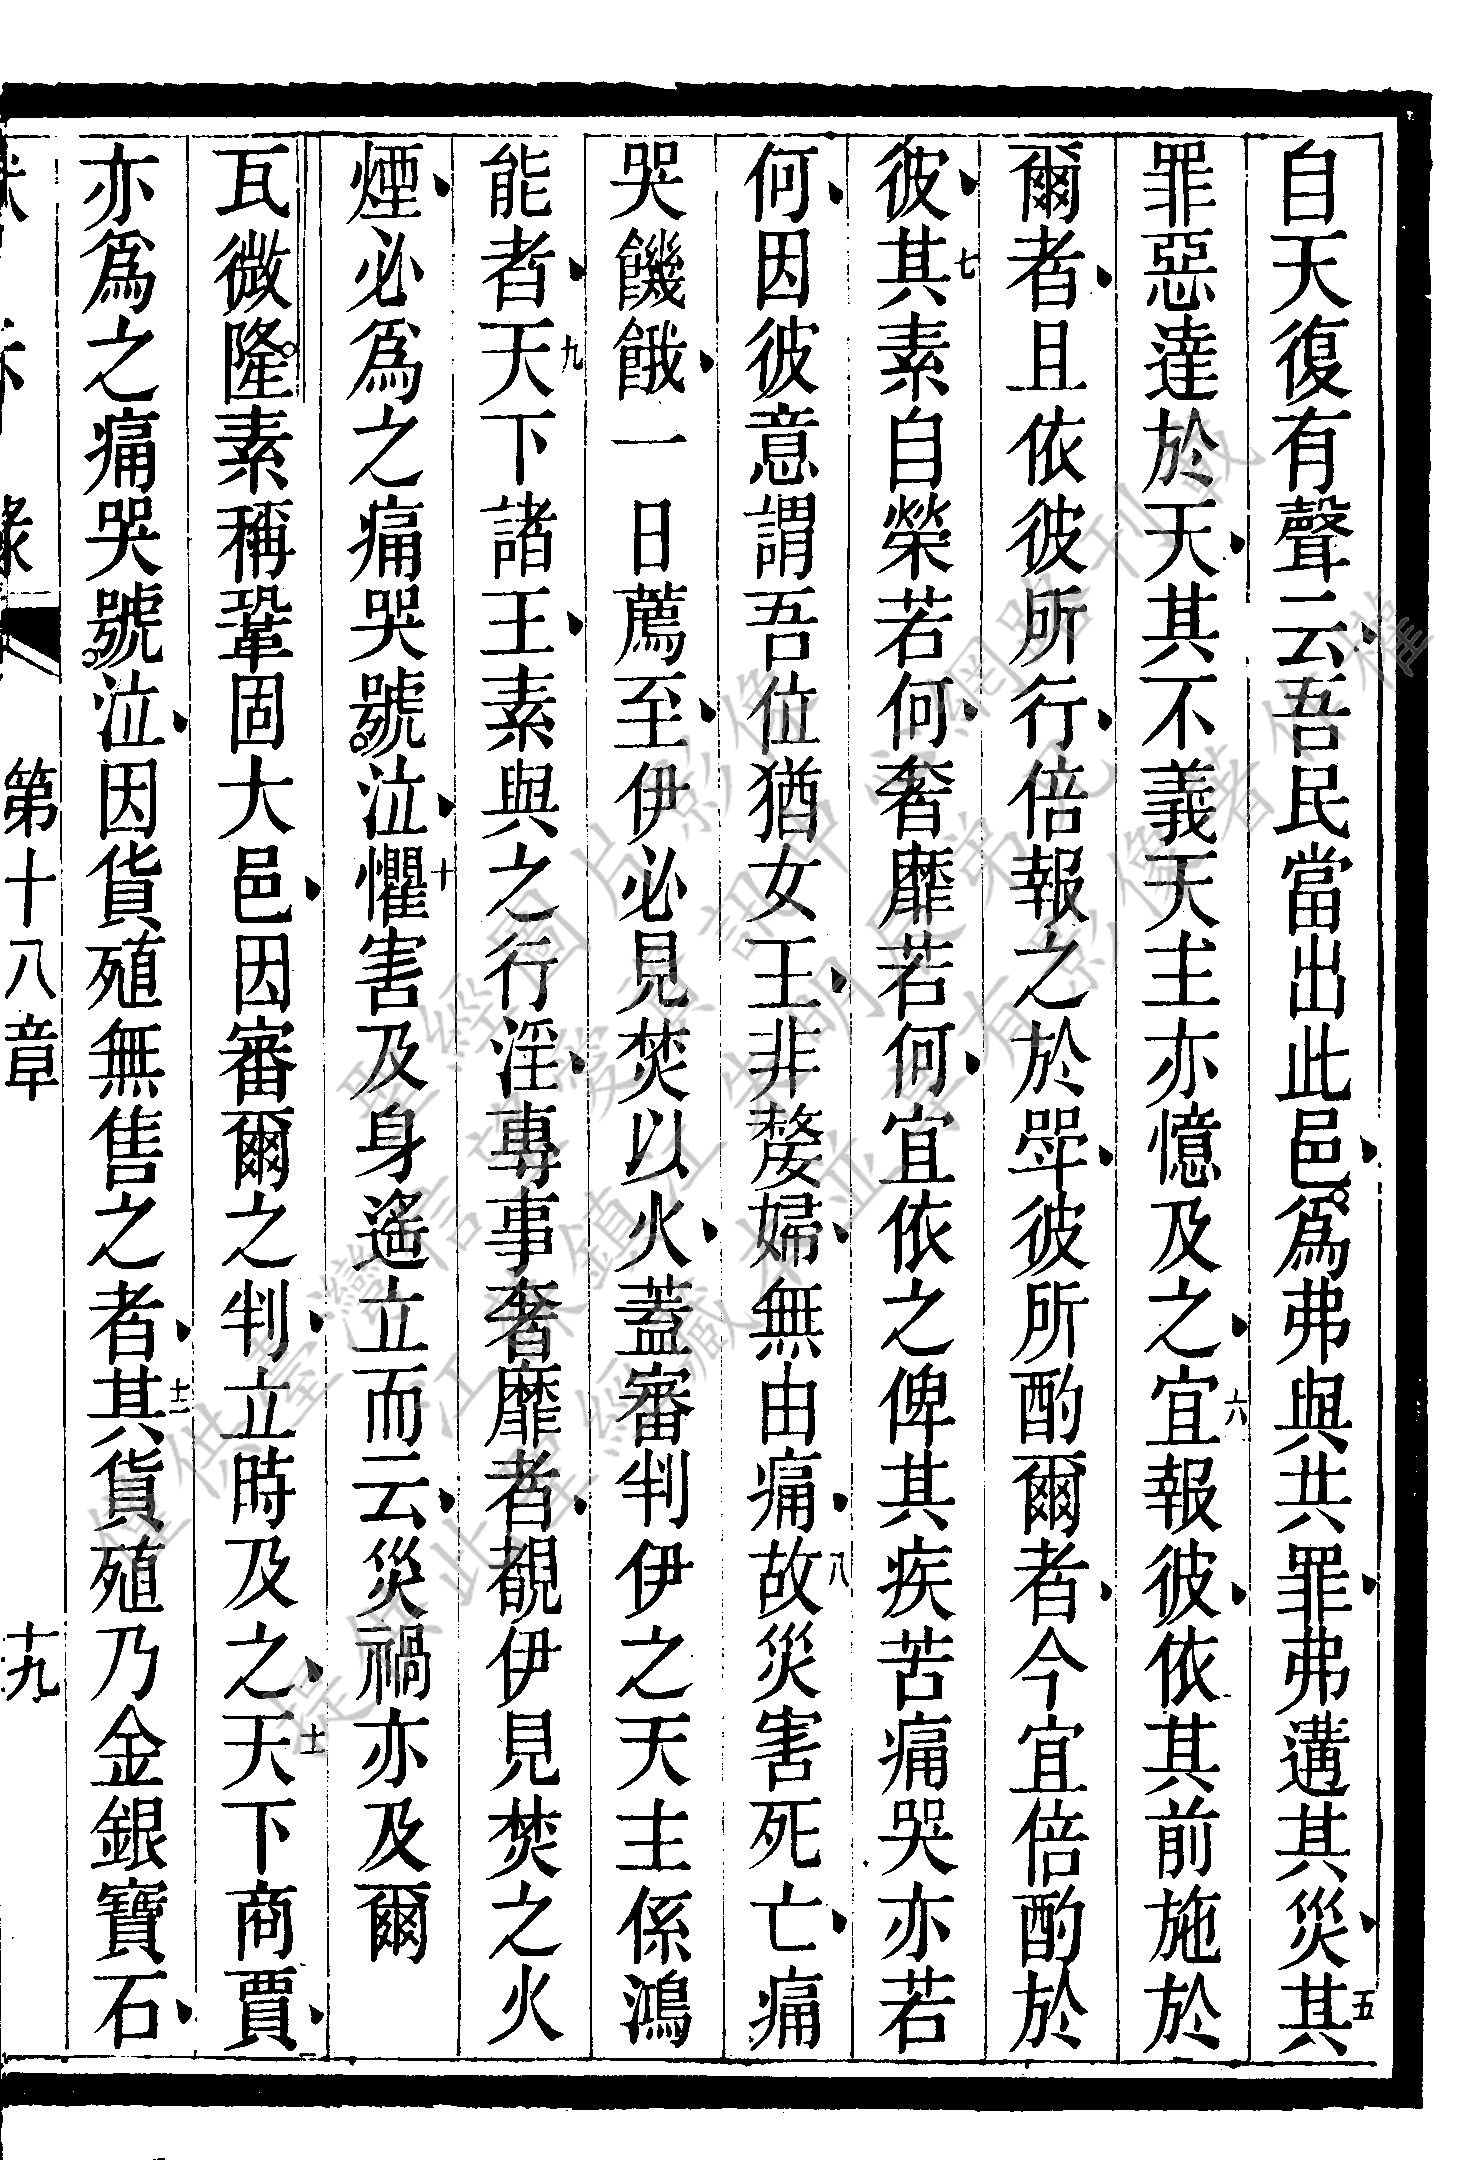 自天復有聲云吾民當出此邑爲弗與共罪弗遘其災其五
罪惡達於天其不義天主亦憶及之宜六報彼依其前施於
爾者且依彼所行倍報之於斝彼所酌爾者今宜倍酌於
彼其七素自榮若何奢靡若何宜依之俾其疾苦痛哭亦若
何因彼意謂吾位猶女王非嫠婦無由痛故八災害死亡痛
哭饑餓一日薦至伊必見焚以火蓋審判伊之天主係鴻
能者天九下諸王素與之行淫專事奢靡者覩伊見焚之火
煙必爲之痛哭號泣懼十害及身遙立而云災禍亦及爾
瓦微隆素稱鞏固大邑因審爾之判立時及之天十一下商賈
亦爲之痛哭號泣因貨殖無售之者其十二貨殖乃金銀寶石
第十八章 十九